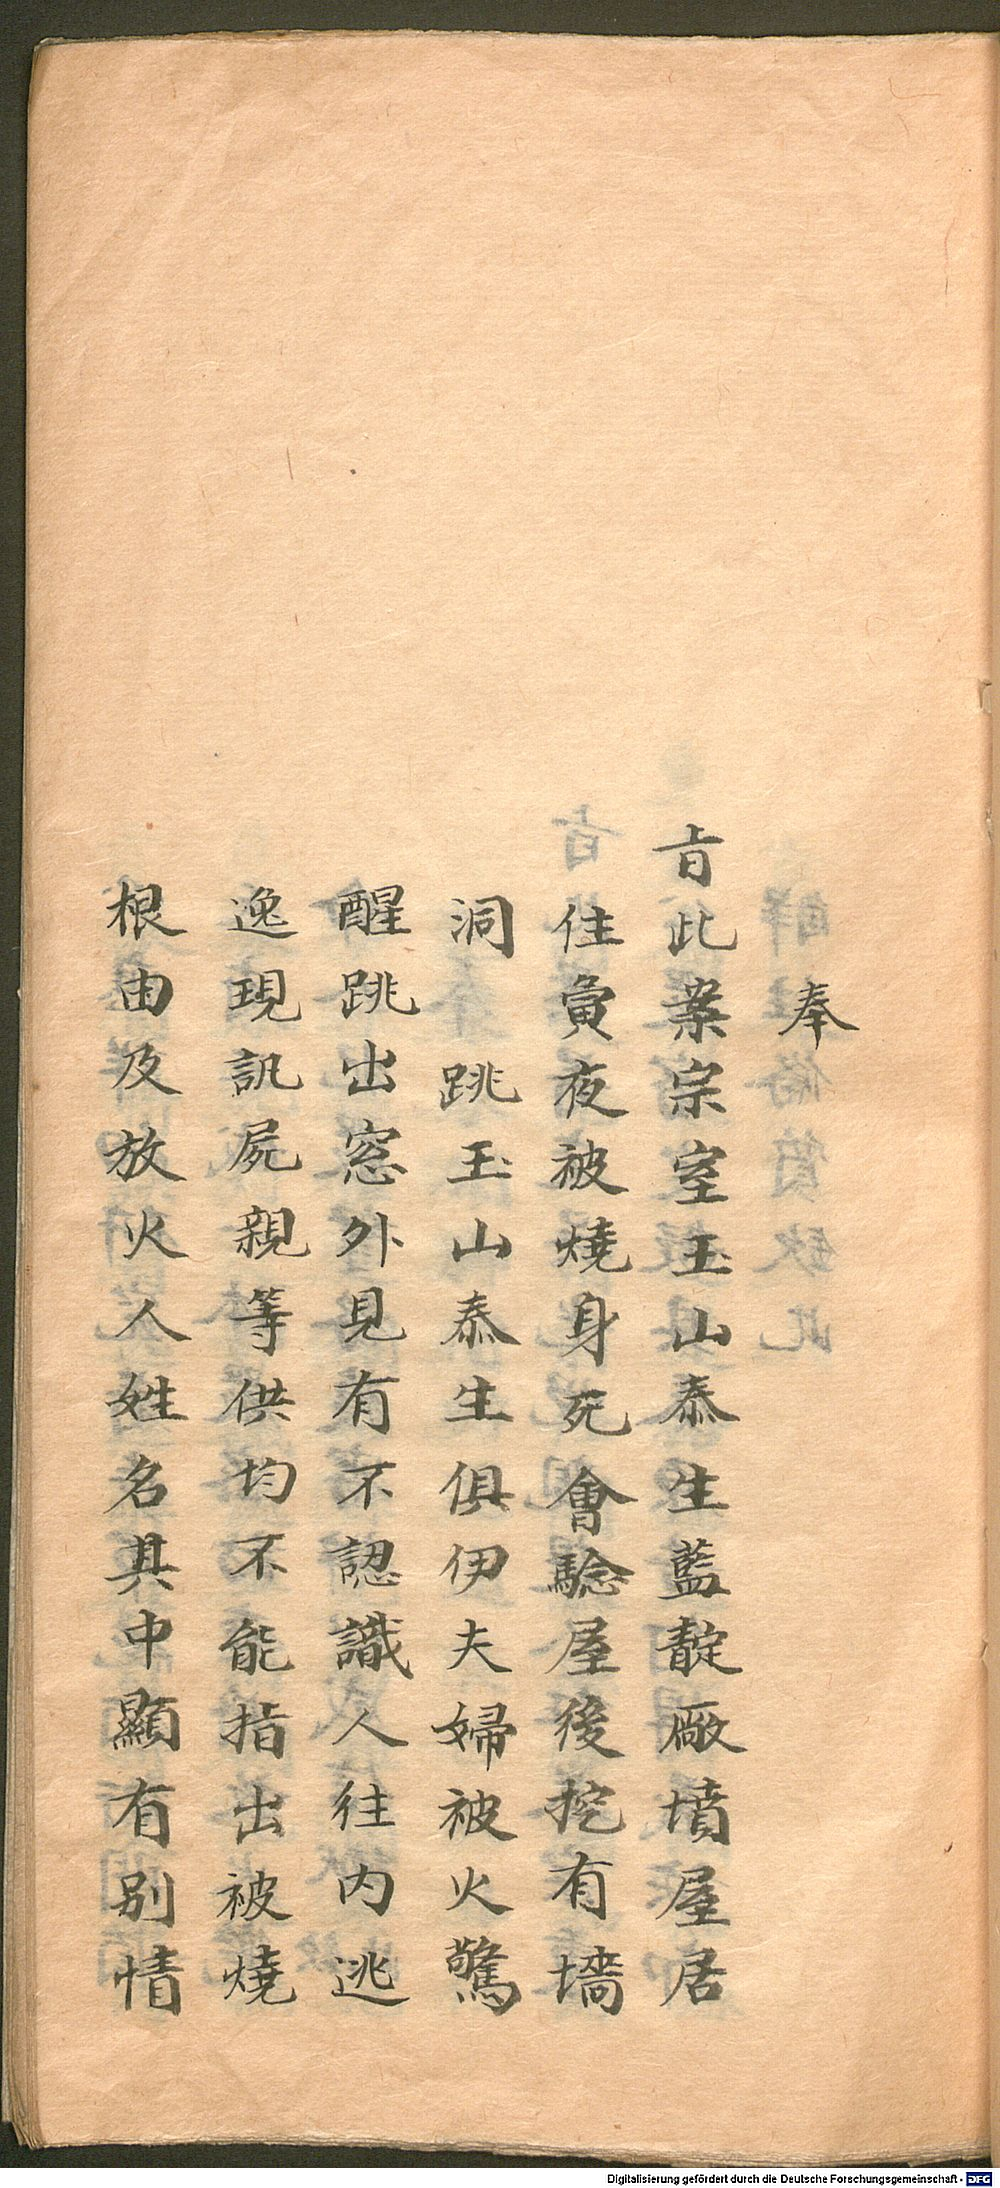 奉
旨此案宗室玉山泰生藍靛厰墳屋居
住寅夜被燒身死會驗屋後挖有墻
洞跳玉山泰生俱伊夫婦被火驚
醒跳出窓外見有不認識人往内逃
逸現訊屍親等供均不能指出被燒
根由及放火人姓名其中顯有別情
Digitalisierung gefördert durch die Deutsche Forschungsgemeinschaft - DFG